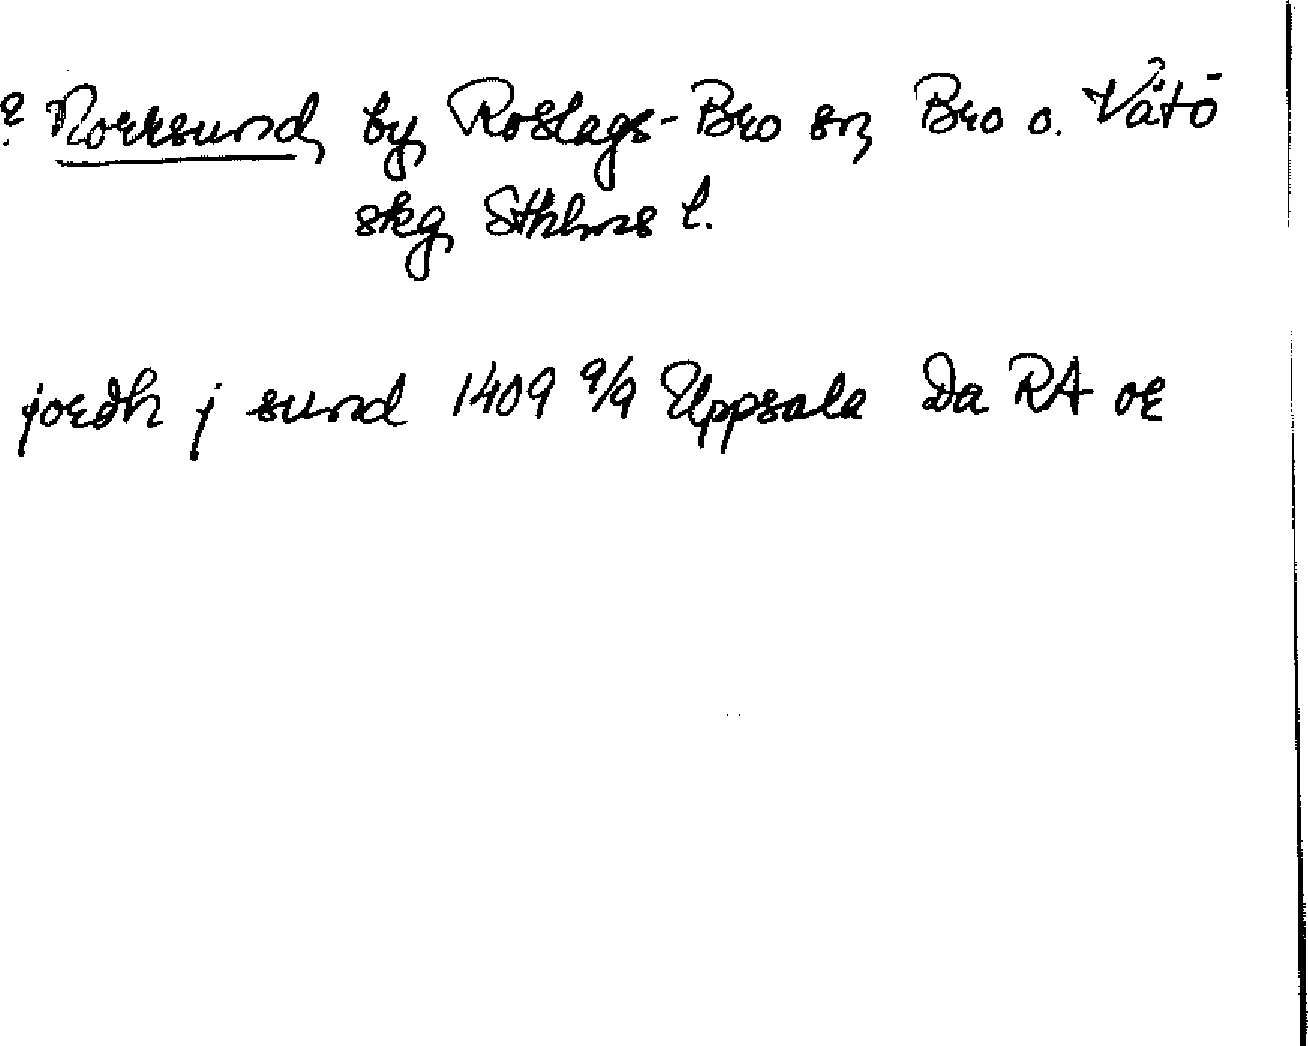 ? Norrsund, by, Roslags-Bro sn, Bro o. Vätö
skg, Sthlms l.
jordh j sund 1409 9/9 Uppsala Da RA or